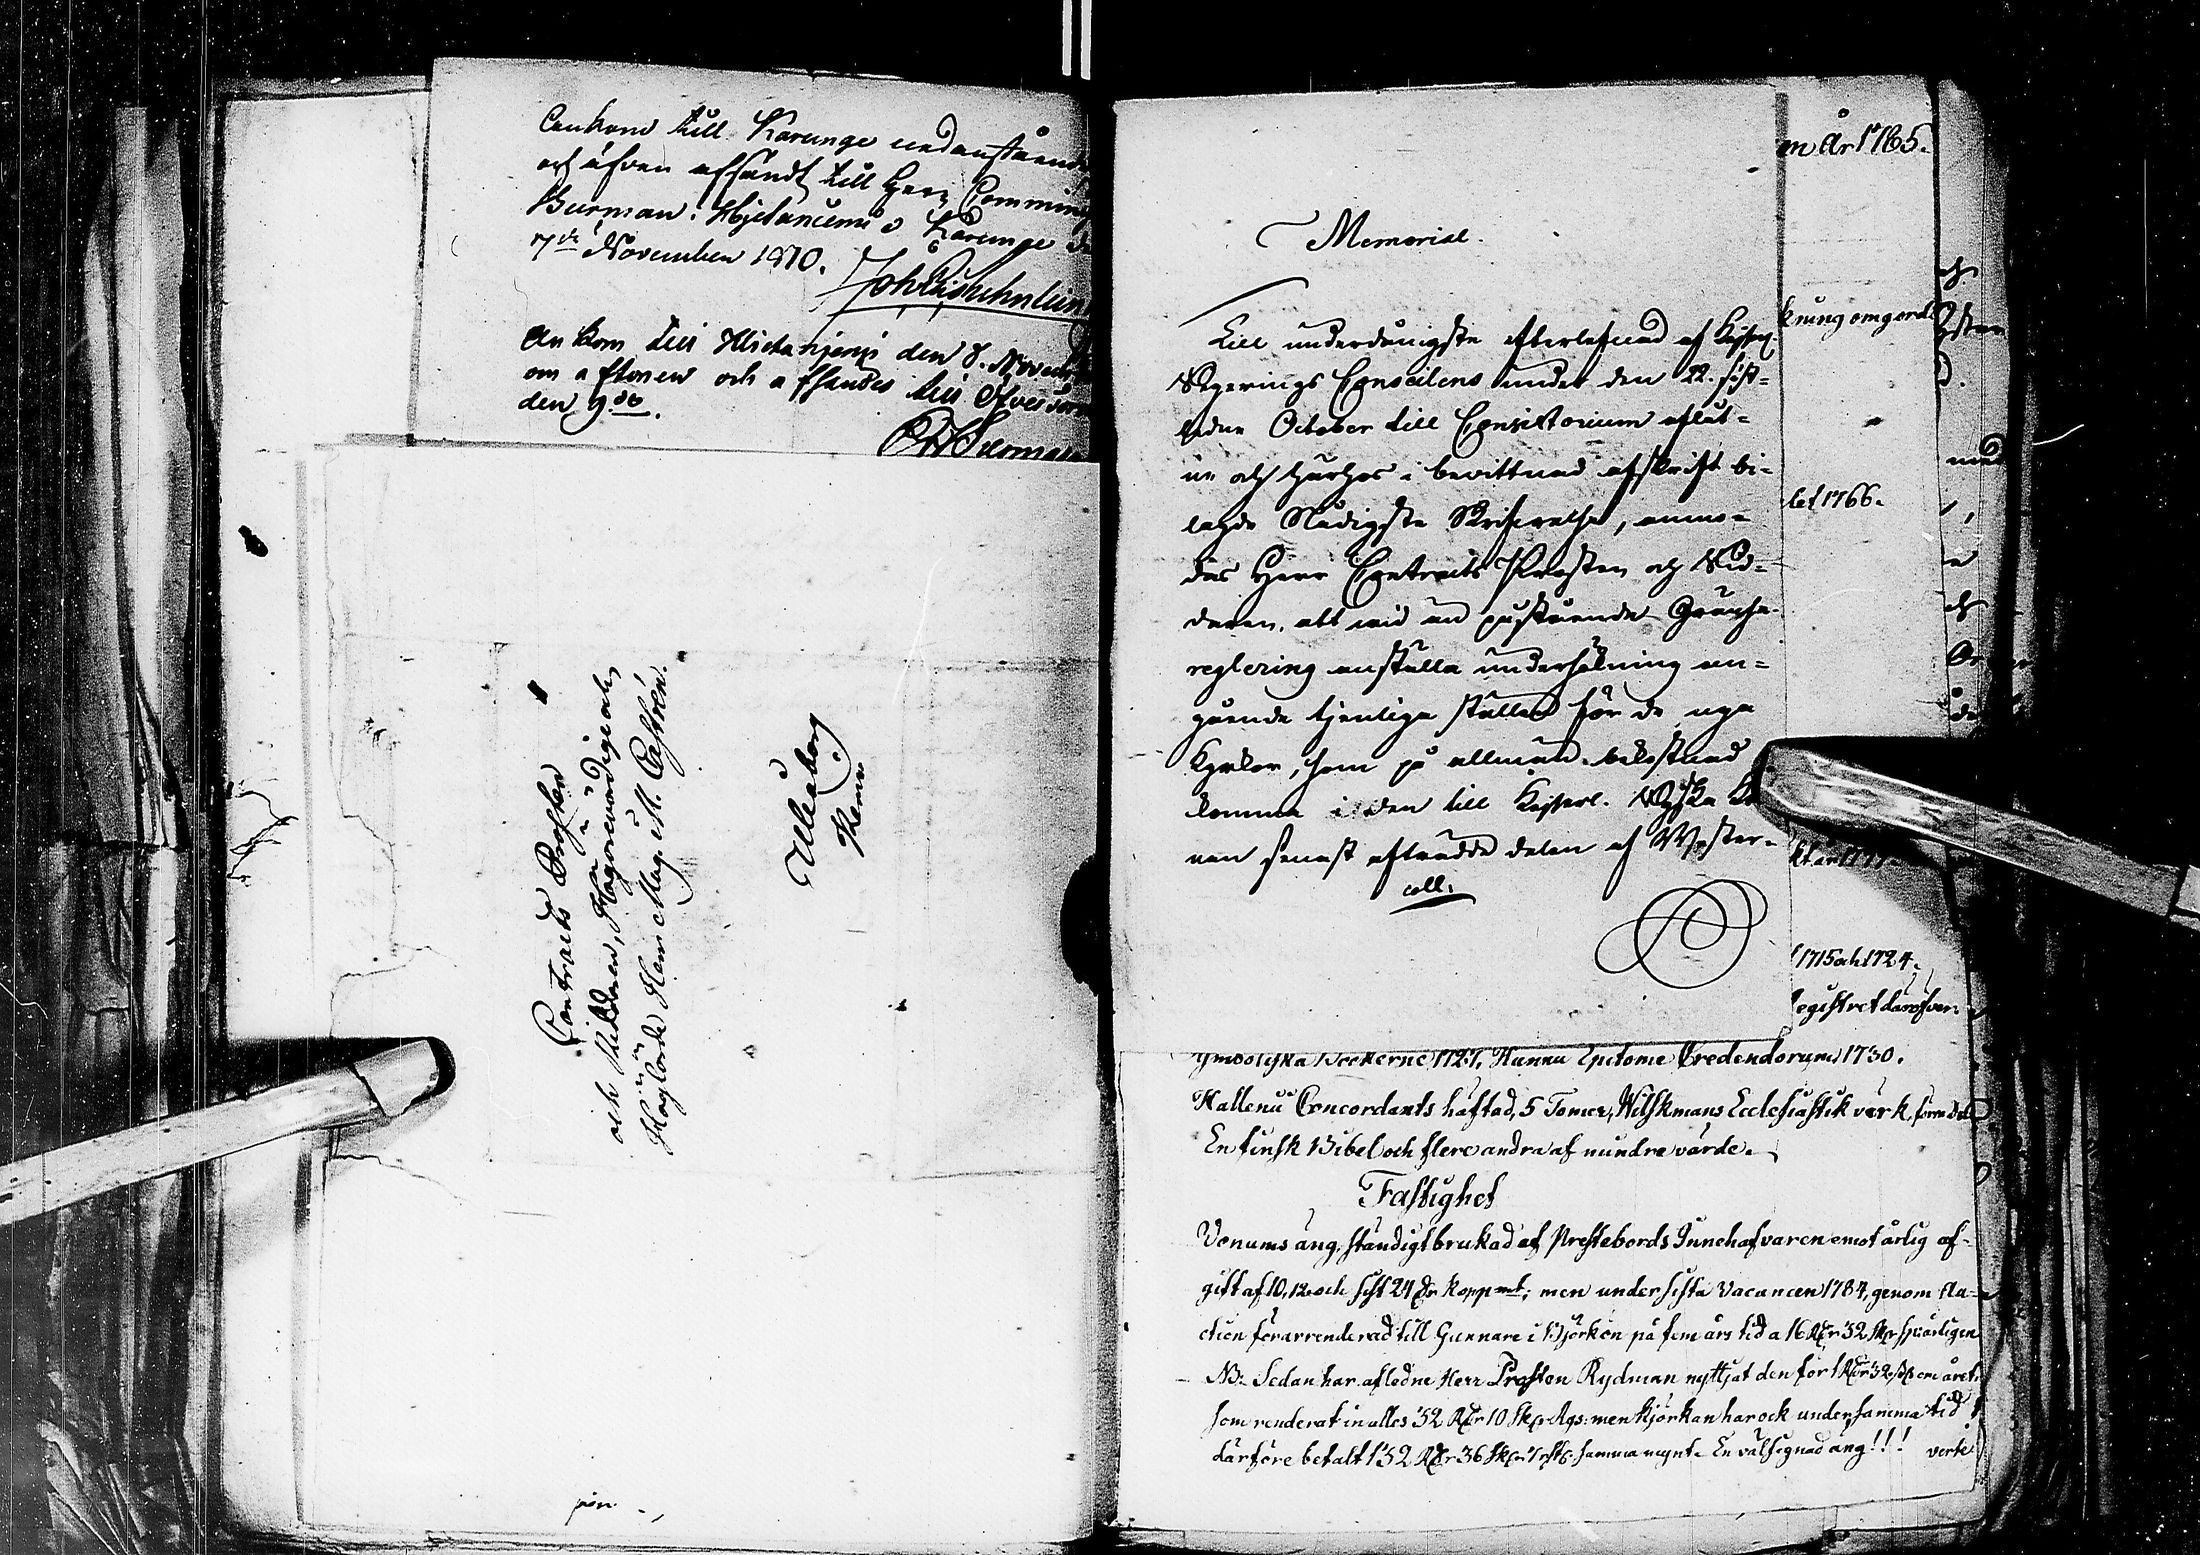 Ankom till Karunge nedanstående
och äfven afsändt till Herr Comminis
Burman i Hjetaniemi o Karunge de
7de November 1810.
Ankom till Hietaniemi den 8. Novemb
om aftonen och afsändes till Öfver
den 9de.
Burman
Contracts Prosten
och Riddaren, Högärevördige och
Höglärde Herr Mag. M. Castrén.
Uleåborg
Kemi
Memorial.
Till underdånigste efterlefnad af Kejserl.
Regerings Conseilens under den 22. sist-
ledne October till Consistorium aflåt-
ne och härhos i bevittnad afskrift bi-
lagde Nådigste Skrifvelse, anmo-
das Herr Contracts Prosten och Rid-
daren, att vid nu påstående Gränse
reglering anställa undersökning an-
gående tjenliga ställen för de nya
Kyrkor, som på allmän bekostnad
komma i den till Kejserl. Ryska
nan senast afträdde delen af Wester-
coll.
m År 1765.
kning omgord
let 1766.
kt år
1715 och 1724.
egistret däröfver
1727, Hannu Epitome Credendorum 1730.
Hallenii Concordants häftad, 5 Tomer, Wilskmans Ecclesiastik värk, förra del
En finsk Bibel och flere andra af mindre värde.
Fastighet
Vonums äng, ständigt brukad af Prestebords Innehafvaren emot årlig af-
gift af 10, 12 och sist 24 Dr kopp mt; men under sista Vacancen 1784, genom Au-
ction förarrenderad till Gunnare i Björkön på fem års tid a 16 Rdr 32 sk spi årligen
NB. Sedan har aflidne Herr Prosten Rydman nyttjat den för 1 Rdr 32 sk om året,
som renderat in alles 32 Rdr 10 sk Rgs: men kjörkan har ock under samma tid
därföre betalt 132 Rdr 36 sk samma mynt. En välsignad äng!!! verte